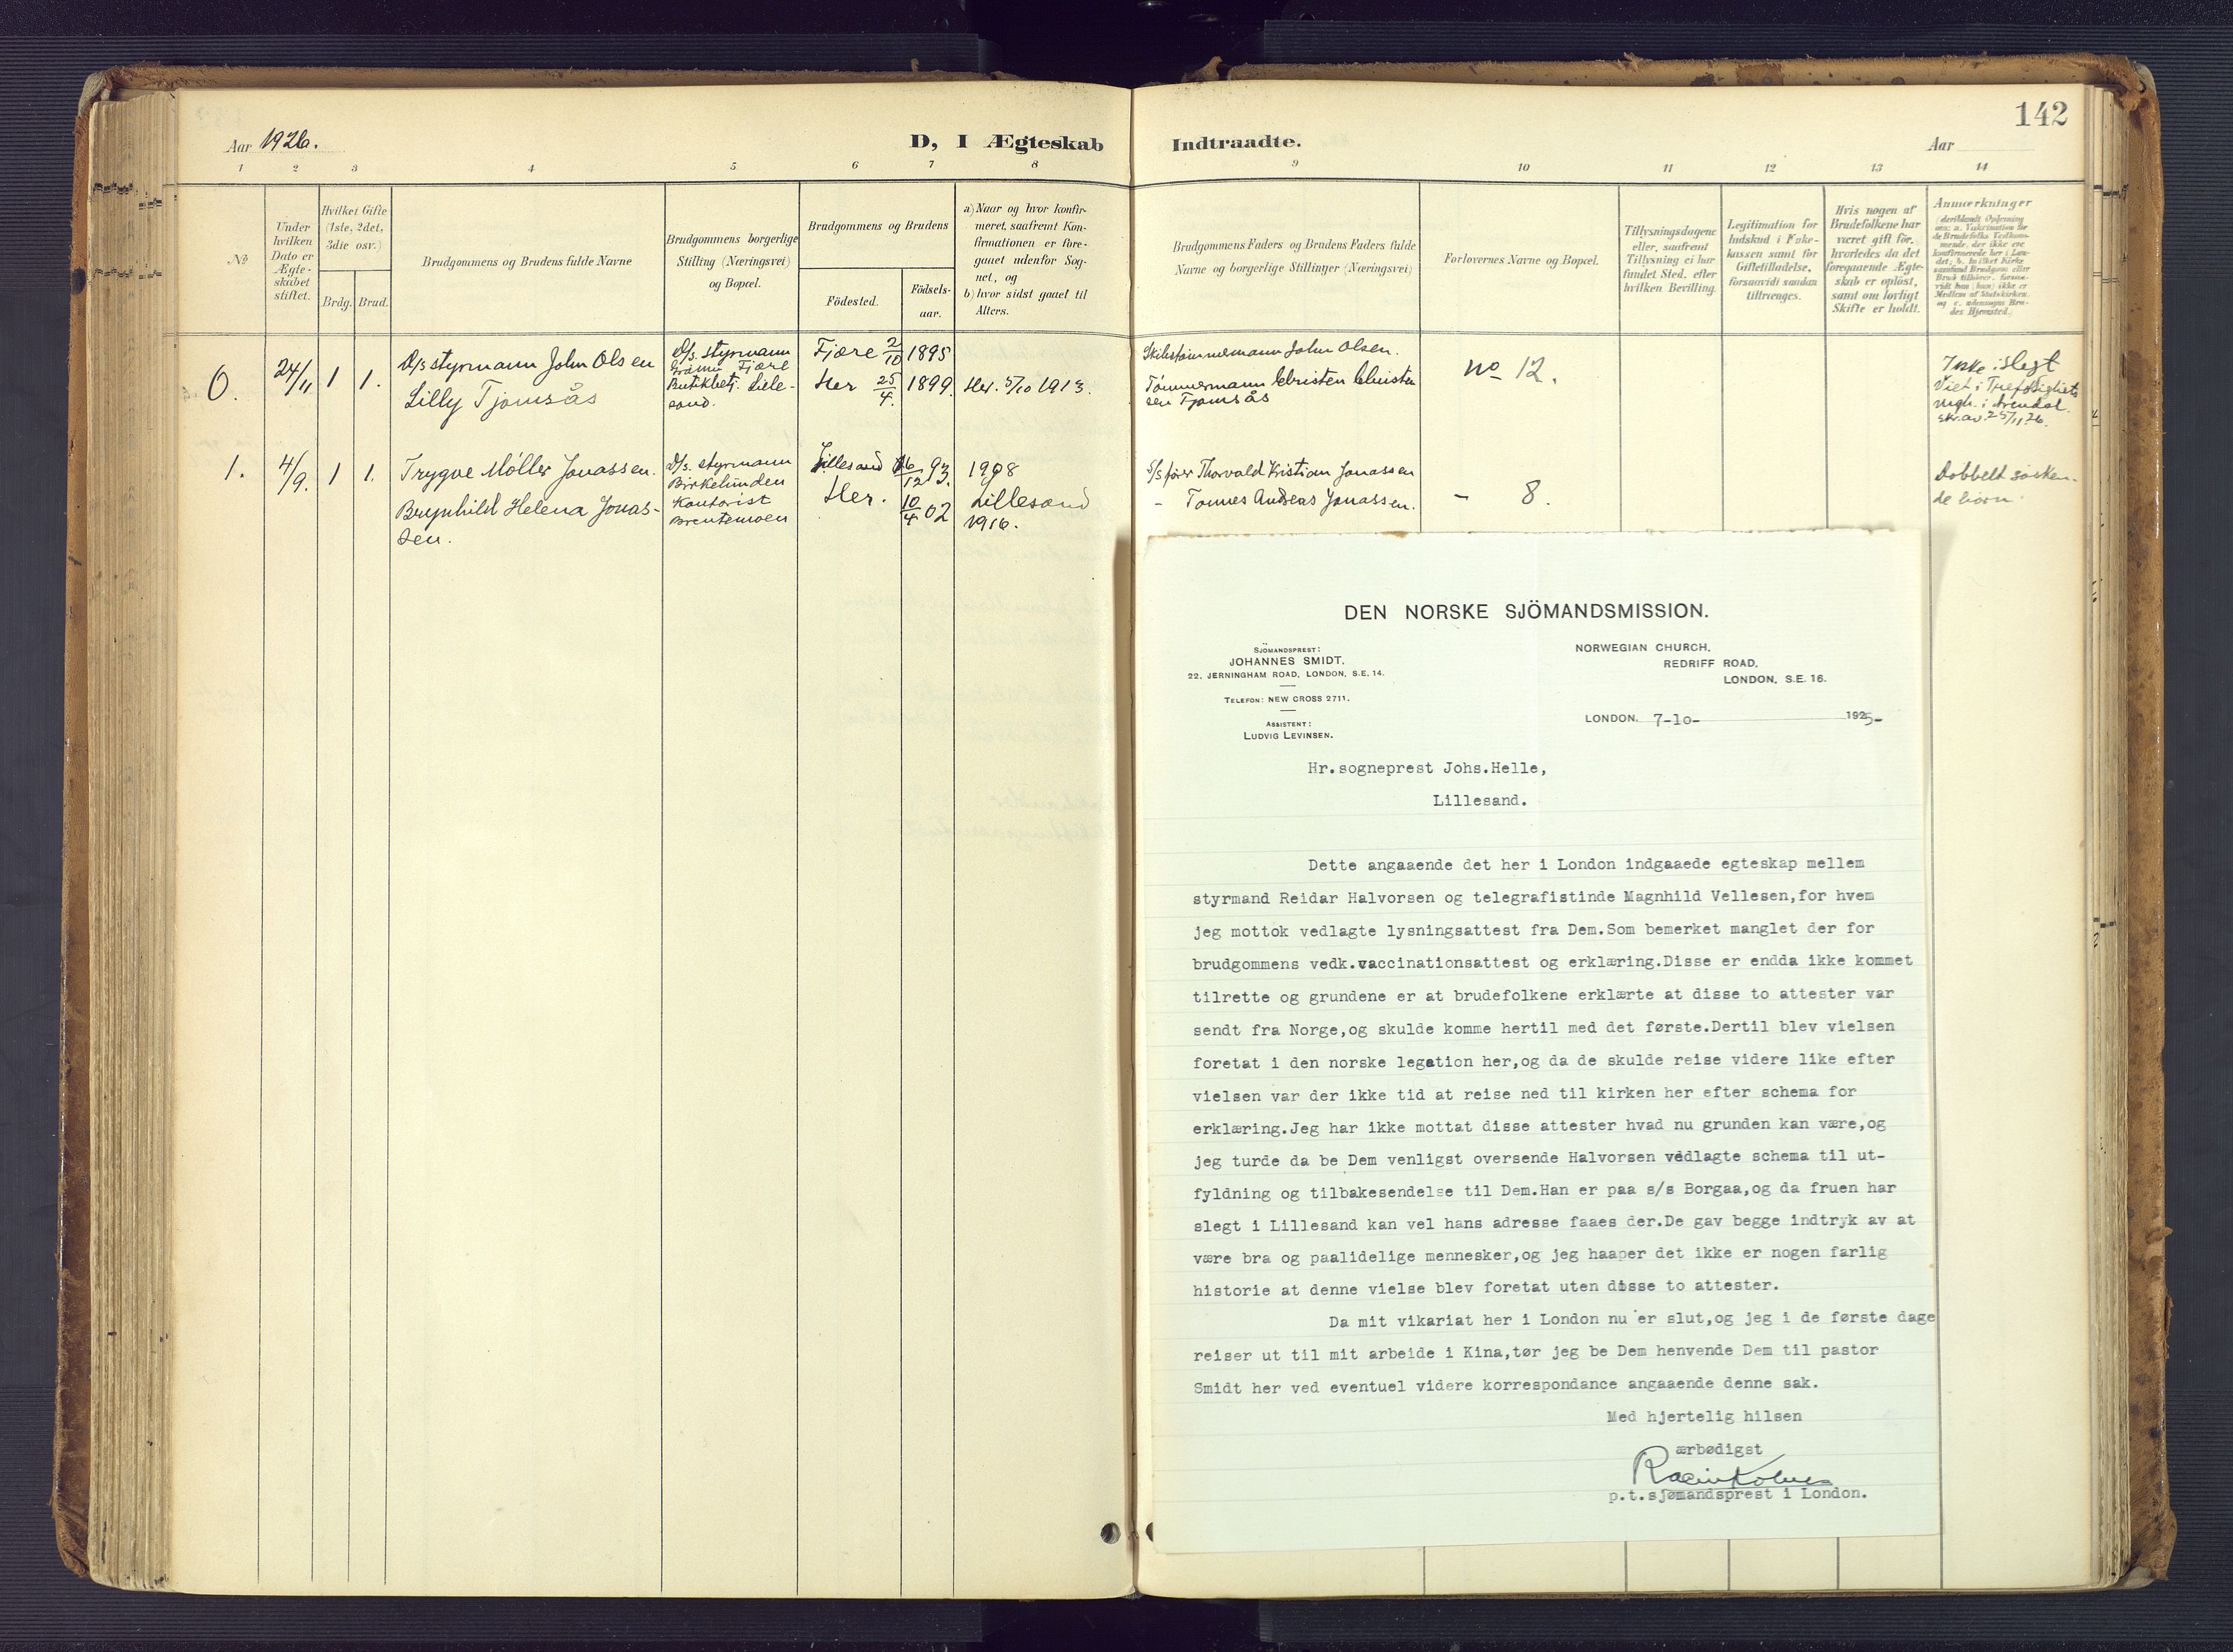 142
Aar 1926.
D, I Ægteskab Indtraadte.
Aar
1 2 3 4 5 6 7 8 9 10 11 12 13 14
№
Under
hvilken
Dato er
Ægte-
skabet
stiftet.
Hvilket Gifte
(1ste, 2det,
3die osv.)
Brdg. Brud.
Brudgommens og Brudens fulde Navne
Brudgommens borgerlige
Stilling (Næringsvei)
og Bopæl.
Brudgommens og Brudens
Födested.
Födsels-
aar.
a) Naar og hvor konfir-
meret, saafremt Kon-
firmationen er fore-
gaaet udenfor Sog-
net, og
b) hvor sidst gaaet til
Alters.
Brudgommens Faders og Brudens Faders fulde
Navne og borgerlige Stillinger (Næringsvei)
Forlovernes Navne og Bopæl.
Tillysningsdagene
eller, saafremt
Tillysning ei har
fundet Sted, efter
hvilken Bevilling.
Legitimation for
Indskud i Enke-
kassen samt for
Giftetilladelse,
forsaavidt saadan
tiltrænges.
Hvis nogen af
Brudefolkene har
været gift för,
hvorledes da det
foregaaende Ægte-
skab er oplöst,
samt om lovligt
Skifte er holdt.
Anmærkninger
0. 24/11 1 1.
D/s styrmann John Olsen
Lilly Tjomsås
D/s. styrmann
Fjære
Butikbetj. Lille-
sand.
Fjære 2/10 1895
Her 25/4. 1899
Her. 5/10 1913.
Skibstømmermann John Olsen.
Tømmermann Christen Christen
sen Tjomsås
No 12.
Ikke i slegt
Viet i Trefoldighets
mgh. i Arendal.
skr. av. 25/11 26.
1. 4/9. 1 1.
Trygve Møller Jonassen.
Brynhild Helena Jonas-
sen.
D/s. styrmann
Birkelunden
Kontorist
Brentemoen
Lillesand 16/12 93.
Her. 10/4 02
1908
Lillesand
1916.
S/s fører Thorvald Kristian Jonassen
- Tønnes Andreas Jonassen.
- 8.
Dobbelt søsken-
de barn.
DEN NORSKE SJÖMANDSMISSION.
SJÖMANDSPREST:
JOHANNES SMIDT,
22, JERNINGHAM ROAD, LONDON, S.E. 14.
TELEFON: NEW CROSS 2711.
ASSISTENT:
LUDVIG LEVINSEN.
NORWEGIAN CHURCH,
REDRIFF ROAD,
LONDON, S.E. 16.
LONDON, 7-10- 1925-
Hr.sogneprest Johs.Helle,
Lillesand.
Dette angaaende det her i London indgaaede egteskap mellem
styrmand Reidar Halvorsen og telegrafistinde Magnhild Vellesen,for hvem
jeg mottok vedlagte lysningsattest fra Dem.Som bemerket manglet der for
brudgommens vedk.vaccinationsattest og erklæring.Disse er endda ikke kommet
tilrette og grundene er at brudefolkene erklærte at disse to attester var
sendt fra Norge,og skulde komme hertil med det første.Dertil blev vielsen
foretat i den norske legation her,og da de skulde reise videre like efter
vielsen var der ikke tid at reise ned til kirken her efter schema for
erklæring.Jeg har ikke mottat disse attester hvad nu grunden kan være,og
jeg turde da be Dem venligst oversende Halvorsen vedlagte schema til ut-
fyldning og tilbakesendelse til Dem.Han er paa s/s Borgaa,og da fruen har
slegt i Lillesand kan vel hans adresse faaes der.De gav begge indtryk av at
være bra og paalidelige mennesker,og jeg haaper det ikke er nogen farlig
historie at denne vielse blev foretat uten disse to attester.
Da mit vikariat her i London nu er slut,og jeg i de første dage
reiser ut til mit arbeide i Kina,tør jeg be Dem henvende Dem til pastor
Smidt her ved eventuel videre korrespondance angaaende denne sak.
Med hjertelig hilsen
ærbødigst
p.t.sjømandsprest i London.